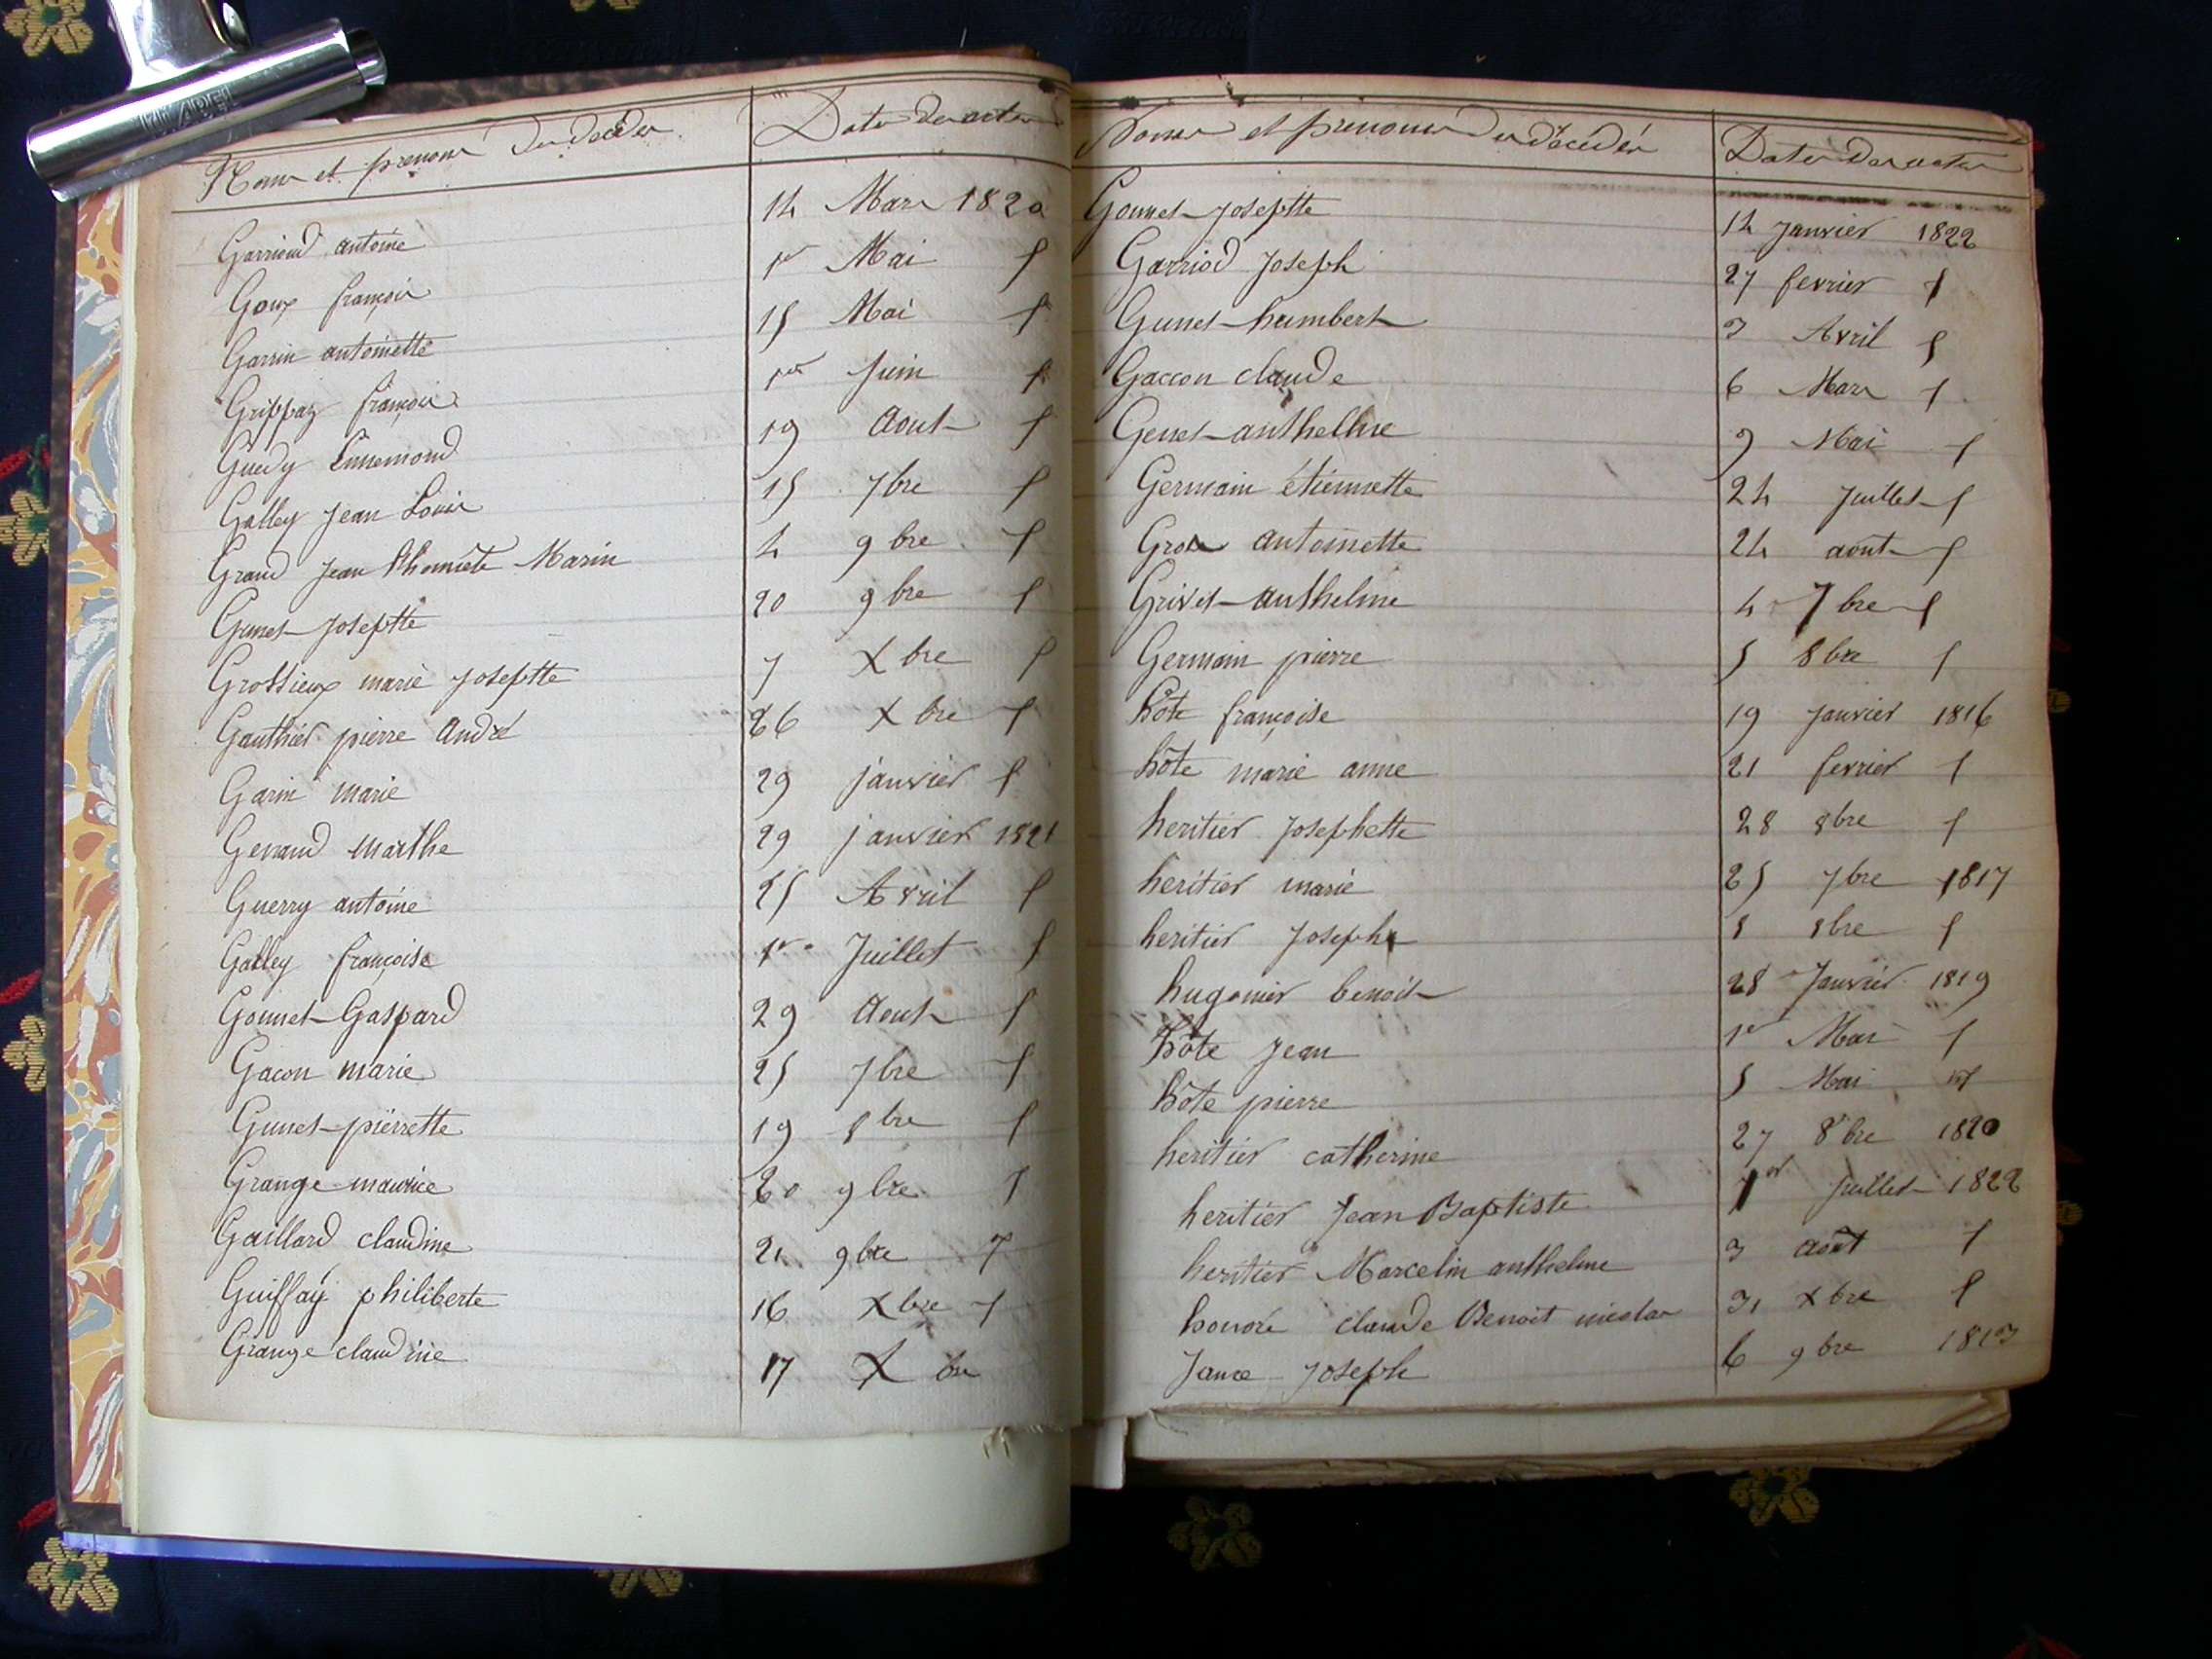 Noms et prenoms des décédés Dates des actes
Garrioud antoine 14 Mars 1820
Goux françois 1er Mai
Garrin antoinette 15 Mai
Grippaz françois 1er Juin
Guedy Ennemond 19 Aout
Galley Jean Louis 15 7bre
Grand Jean Marin 4 9bre
Gunet Josephte 20 9bre
Grossieux marie Josephte 7 Xbre
Gauthier pierre André 26 Xbre
Garin marie 29 janvier
Genaud marthe 29 janvier 1821
Guerry antoine 25 Avril
Galley françoise 1er Juillet
Gonnet Gaspard 29 Aout
Gacon marie 25 7bre
Gunet pierrette 19 8bre
Grange maurice 20 9bre
Gaillard claudine 21 9bre
Guiffay philiberte 16 Xbre
Grange claudine 17 Xbre
Noms et prenoms des décédés Dates des actes
Gonnet Josephte 14 Janvier 1822
Garriod Joseph 27 fevrier
Gunet humbert 3 Avril
Gaccon claude 6 Mars
Genet anthelme 9 Mai
Germain étiennette 24 Juillet
Gros antoinette 24 août
Grivet anthelme 4 7bre
Germain pierre 5 8bre
hôte françoise 19 Janvier 1816
hôte marie anne 21 fevrier
heritier Josephette 28 8bre
heritier marie 25 7bre 1817
heritier Joseph 8 8bre
hugonier benoit 28 Janvier 1819
hôte Jean 1er
hôte pierre 5 Mai
heritier catherine 27 8bre 1820
heritier Jean Baptiste 1er Juillet 1822
heritier Marcelin anthelme 3 août
honoré claude Benoit nicolas 31 xbre
Jance Joseph 6 9bre 1813